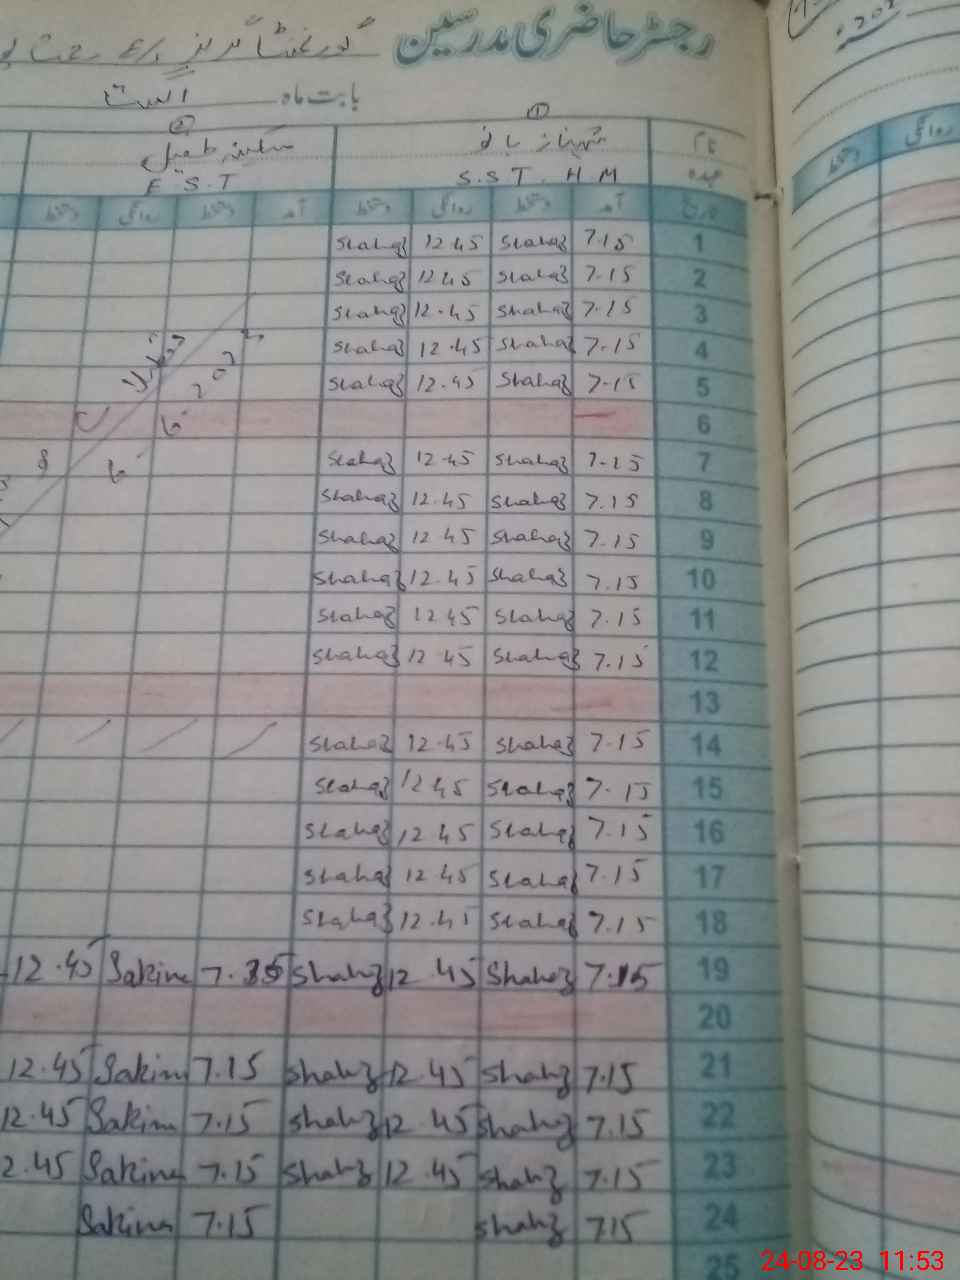 رجسٹر حاضری مدرسین گورنمنٹ گرلز
بابت ماہ اگست
① ②
نام شہناز بانو سکینہ طفیل
عہدہ S.S.T. H M E.S.T
تاریخ آمد دستخط روانگی دستخط آمد دستخط روانگی دستخط
1 7.15 Shahaz 12.45 Shahaz
2 7.15 Shahaz 12.45 Shahaz
3 7.15 Shahaz 12.45 Shahaz
4 7.15 Shahaz 12.45 Shahaz
5 7.15 Shahaz 12.45 Shahaz
6
7 7.15 Shahaz 12.45 Shahaz
8 7.15 Shahaz 12.45 Shahaz
9 7.15 Shahaz 12.45 Shahaz
10 7.15 Shahaz 12.45 Shahaz
11 7.15 Shahaz 12.45 Shahaz
12 7.15 Shahaz 12.45 Shahaz
13
14 7.15 Shahaz 12.45 Shahaz
15 7.15 Shahaz 12.45 Shahaz
16 7.15 Shahaz 12.45 Shahaz
17 7.15 Shahaz 12.45 Shahaz
18 7.15 Shahaz 12.45 Shahaz
19 7.15 Shahaz 12.45 Shahaz 7.15 Sakina 12.45
20
21 7.15 Shahaz 12.45 Shahaz 7.15 Sakina 12.45
22 7.15 Shahaz 12.45 Shahaz 7.15 Sakina 12.45
23 7.15 Shahaz 12.45 Shahaz 7.15 Sakina 2.45
24 7.15 Shahaz 7.15 Sakina
25
روانگی دستخط
24-08-23 11:53